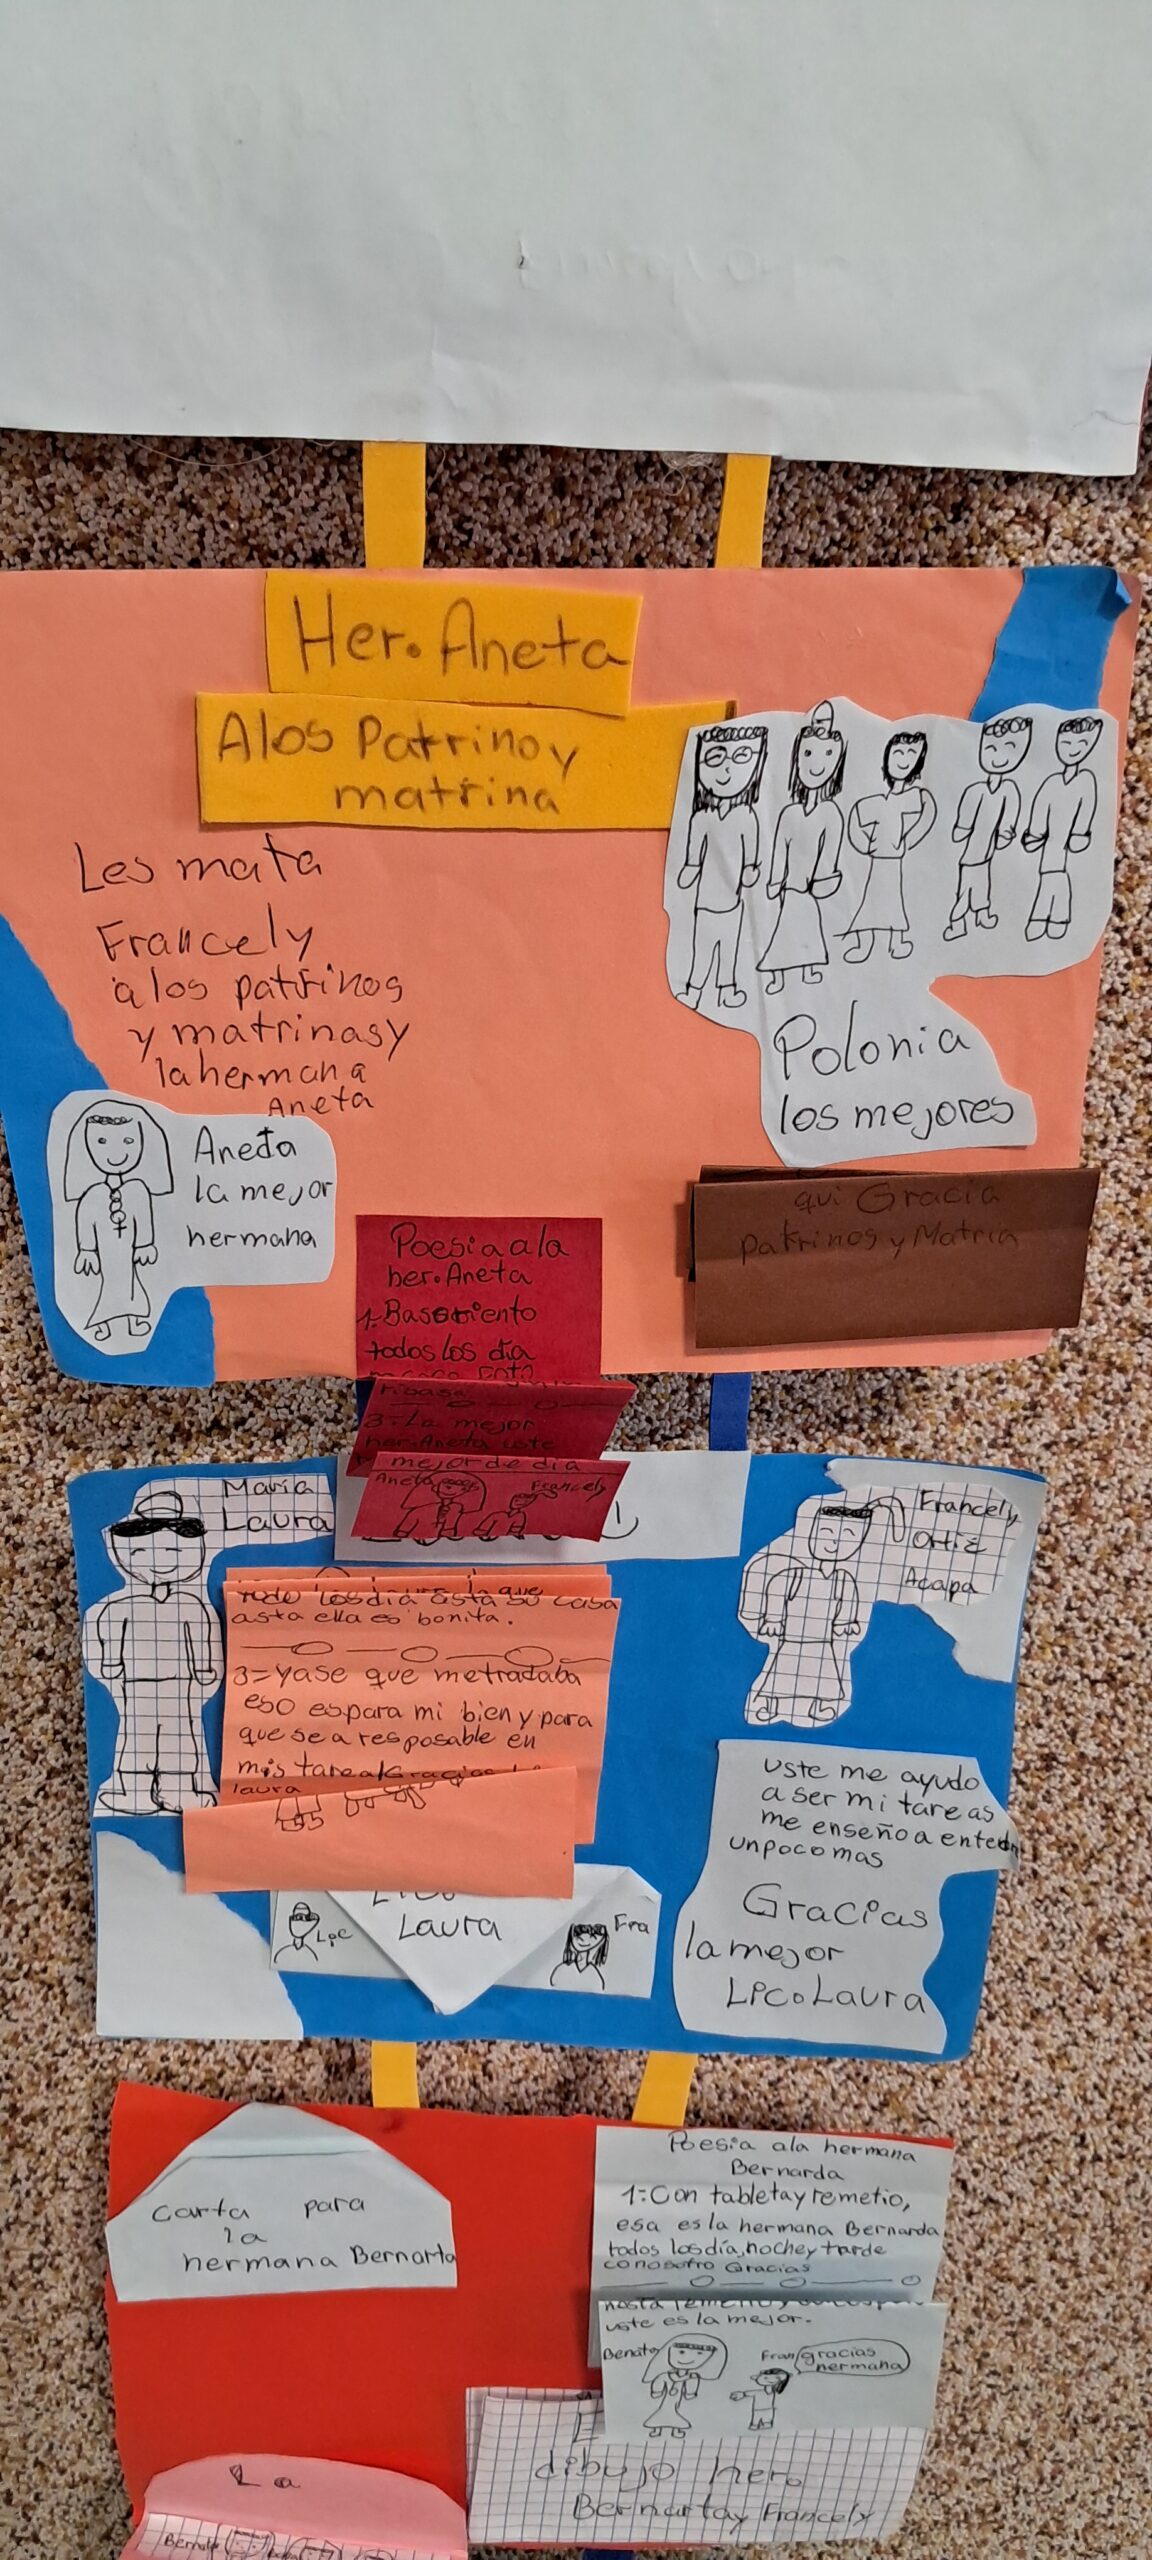 Her. Aneta
A los Patrino y
matrina
Les mata
Francely
a los patrinos
y matrinas y
la hermana
Aneta
Polonia
los mejores
Aneta
la mejor
hermana
qui Gracia
patrinos y Matria
Poesia a la
her. Aneta
todos los día
3=La mejor
her. Aneta uste
mejor de día
Aneta
Francely
María
Laura
Francely
Ortiz
Acapa
asta ella es bonita.
3=Yase que metradaba
eso es para mi bien y para
que sea resposable en
mis tarea Gracias
laura
uste me ayudo
a ser mi tareas
me enseño a
un poco mas
Gracias
la mejor
Lic. Laura
Laura
Lic
Fra
carta para
la
hermana Bernarta
Poesia a la hermana
Bernarda
1=Con tableta y remetio,
esa es la hermana Bernarda
todos los día, noche y tarde
conosotro Gracias
uste es la mejor.
Bernata
Fran
gracias
hermana
dibujo her.
Bernarta y Francely
La